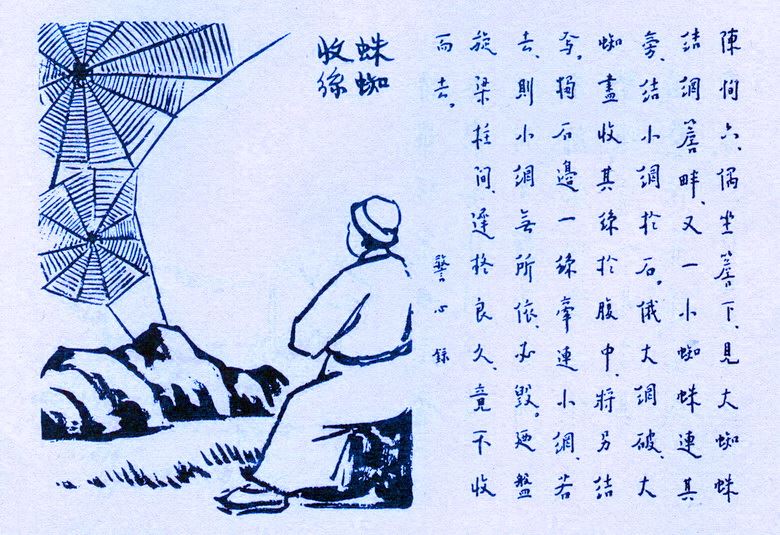 蛛蜘
收絲
陳恂六、偶坐簷下、見大蜘蛛
結網簷畔、又一小蜘蛛連其
旁、結小網於石。俄大網破、大
蜘盡收其絲於腹中、將另結
矣。獨石邊一絲牽連小網、若
去、則小網無所依、必毀。迺盤
旋梁柱間、遲良久、竟不收
而去。 警心錄